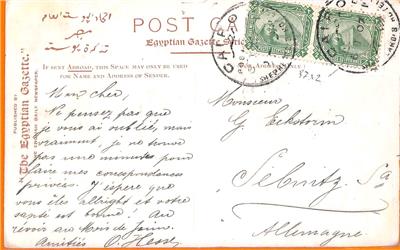 اتحاد پوسته عام
مصر
تذكرة بوسته
POST CA
Egyptian Gazette Serie
IF SENT ABROAD, THIS SPACE MAY ONLY BE USED
FOR NAME AND ADDRESS OF SENDER.
PUBLISHED BY
"The Egyptian Gazette."
THE CAIRO DAILY NEWSPAPER.
CAIRO
CAIRO
5732
Mon cher,
Ne pensez pas que
je vous ai oublié, mais
vraiment je ne trouve
pas une minutes pour
faire mes correspondences
privées. J'espère que
vous êtes allright et votre
santé est bonne! Au
révoir au mois de
Amitiés O. Hess
Monsieur
G. Eckstorm
Sebnitz Sa
Allemagne